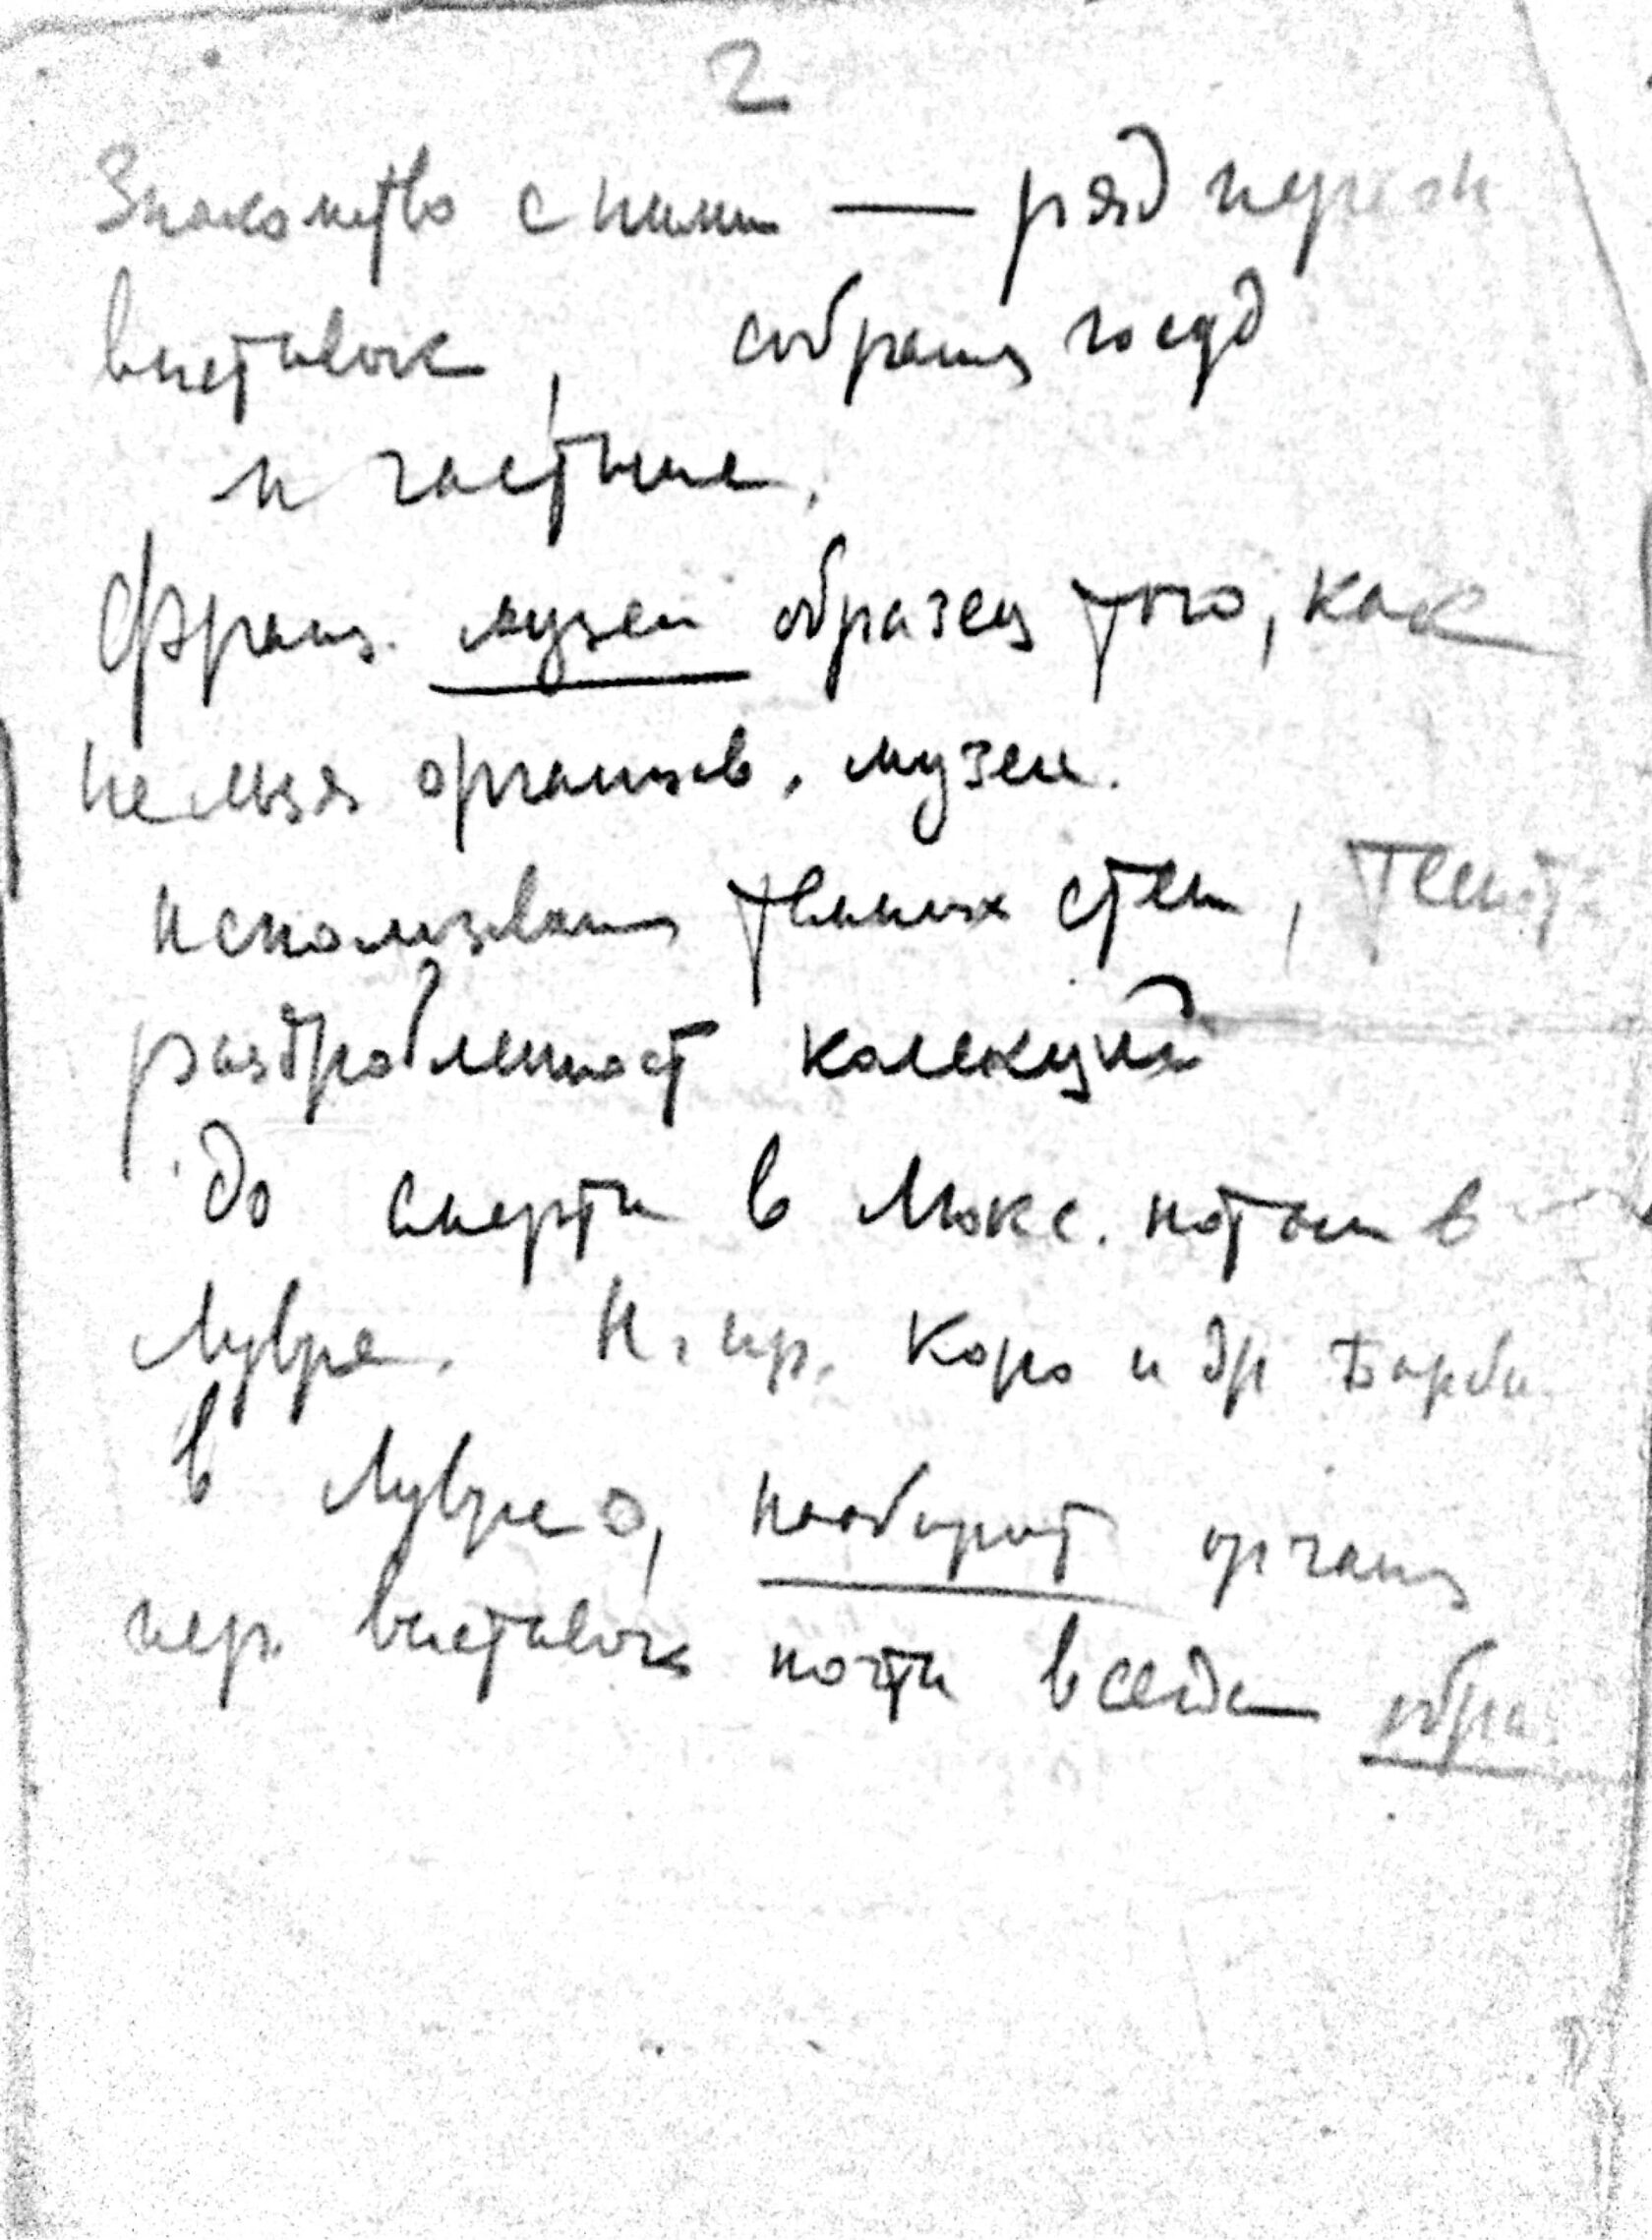 2
Знакомство с ними — ряд
выставок, собрания госуд
и частные.
Франц. музеи образец того, как
нельзя организов. музеи.
использование темных стен, теснота
раздробленность коллекций
до смерти в Люкс. потом в
Лувре. Н. пр. Коро и др Барби
в Лувре, наоборот органи
пер. выставок почти всегда обра